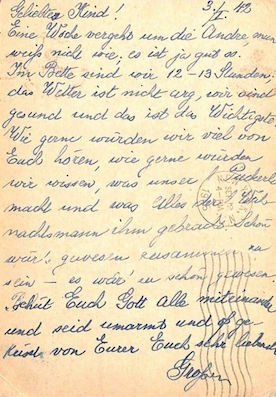 Geliebtes Kind! 3./I 43
Eine Woche vergeht um die Andre, man
weiß nicht wie, es ist ja gut so.
Im Bette sind wir 12-13 Stunden
das Wetter ist nicht arg, wir sind
gesund und das ist das Wichtigste.
Wie gerne würden wir viel von
Euch hören, wie gerne würden
wir wissen, was unser Puckerl
macht und was Alles der Weih-
nachtsmann ihm gebracht. Schön
wär's gewesen zusammen zu
sein – es wär' zu schön gewesen.
Behüt Euch Gott alle miteinander
und seid umarmt und oft ge-
küsst von Eurer Euch sehr liebende